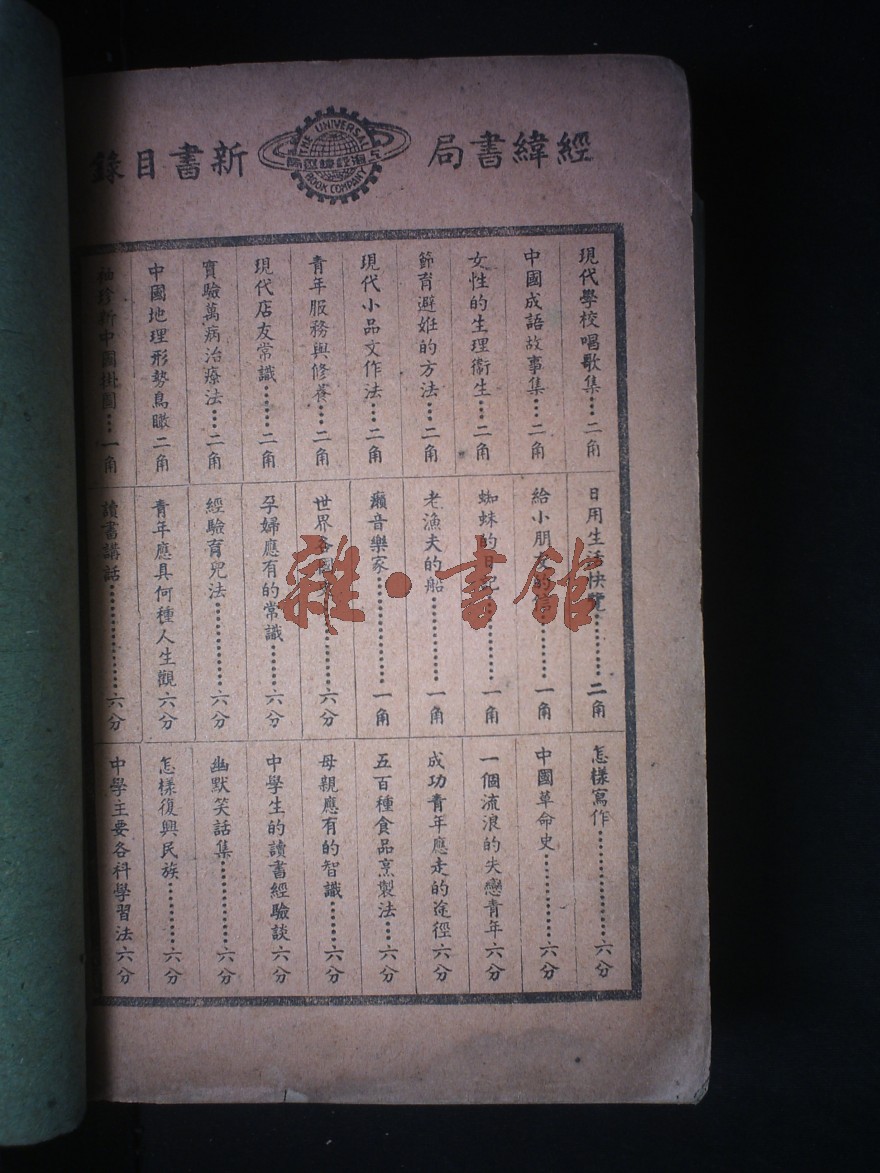 經緯書局
THE UNIVERSAL
BOOK COMPANY
新書目錄
現代學校唱歌集…二角
中國成語故事集…二角
女性的生理衞生…二角
節育避姙的方法…二角
現代小品文作法…二角
青年服務與修養…二角
現代店友常識……二角
實驗萬病治療法…二角
中國地理形勢鳥瞰二角
袖珍新中國掛圖…一角
日用生活快覽……二角
給小朋友的信……一角
蜘蛛的日記………一角
老漁夫的船………一角
癩音樂家…………一角
世界各國………六分
孕婦應有的常識…六分
經驗育兒法………六分
青年應具何種人生觀六分
讀書講話…………六分
怎樣寫作…………六分
中國革命史………六分
一個流浪的失戀青年六分
成功青年應走的途徑六分
五百種食品烹製法…六分
母親應有的智識…六分
中學生的讀書經驗談六分
幽默笑話集………六分
怎樣復興民族……六分
中學主要各科學習法六分
雜·書館